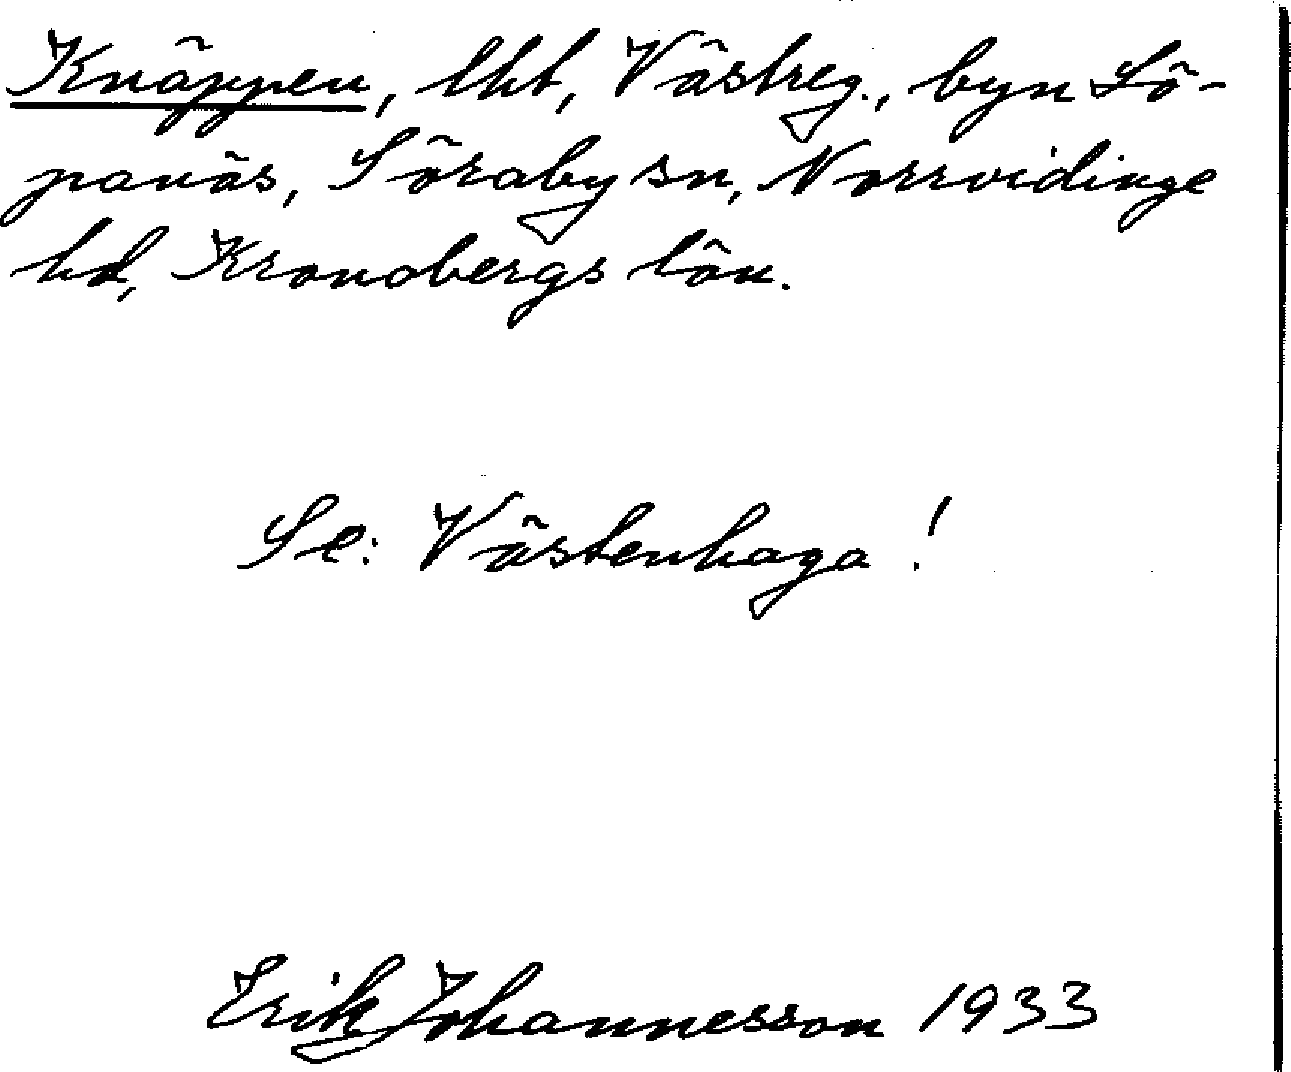 Knäppen, lht, Västreg., byn Lö-
panäs, Söraby sn, Norrvidinge
hd, Kronobergs län.
Se: Västenhaga!
Erik Johannesson 1933